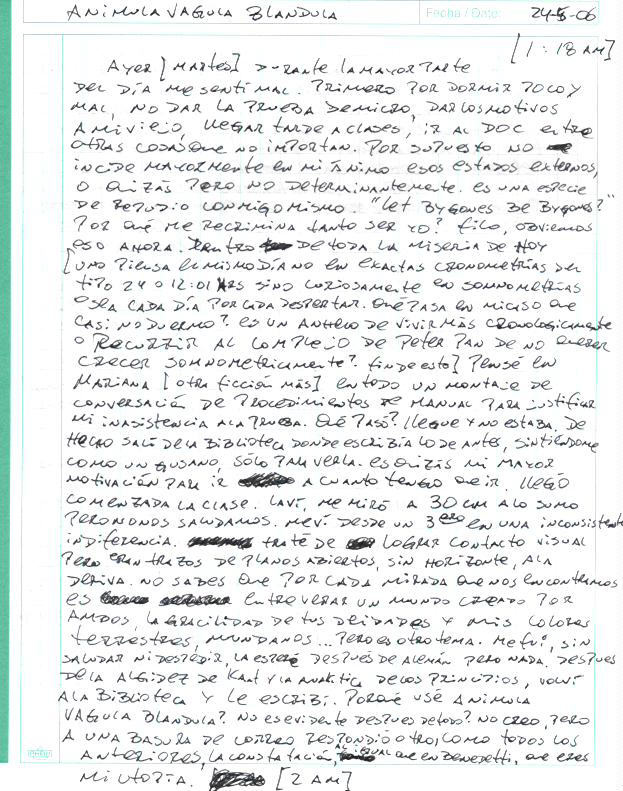 ANIMULA VAGULA BLANDULA
Fecha / Date: 24-5-06
[1:18 AM]
AYER [MARTES] DURANTE LA MAYOR PARTE
DEL DÍA ME SENTI MAL. PRIMERO POR DORMIR POCO Y
MAL, NO DAR LA PRUEBA DE MICRO, DAR LOS MOTIVOS
A MI VIEJO, LLEGAR TARDE A CLASES, IR AL DOC ENTRE
OTRAS COSAS QUE NO IMPORTAN. POR SUPUESTO NO
INCIDE MAYORMENTE EN MI ÁNIMO ESOS ESTADOS EXTERNOS,
O QUIZÁS PERO NO DETERMINANTEMENTE. ES UNA ESPECIE
DE REPUDIO CONMIGO MISMO. "LET BYGONES BE BYGONES?"
POR QUÉ ME RECRIMINA TANTO SER YO? FILO, OBVIEMOS
ESO AHORA. DENTRO DE TODA LA MISERIA DE HOY
[UNO PIENSA EL MISMO DÍA NO EN EXACTAS CRONOMETRÍAS DEL
TIPO 24 O 12:01 HRS SINO CURIOSAMENTE EN SOMNOMETRÍAS
O SEA CADA DÍA POR CADA DESPERTAR. QUÉ PASA EN MI CASO QUE
CASI NO DUERMO? ES UN ANHELO DE VIVIR MÁS CRONOLOGICAMENTE
O RECURRIR AL COMPLEJO DE PETER PAN DE NO QUERER
CRECER SOMNOMETRICAMENTE? FIN DE ESTO] PENSÉ EN
MARIANA [OTRA FICCIÓN MÁS] EN TODO UN MONTAJE DE
CONVERSACIÓN DE PROCEDIMIENTOS DE MANUAL PARA JUSTIFICAR
MI INASISTENCIA A LA PRUEBA. QUÉ PASÓ? LLEGUE Y NO ESTABA. DE
HECHO SALÍ DE LA BIBLIOTECA DONDE ESCRIBÍA LO DE ANTES, SINTIENDOME
COMO UN GUSANO, SÓLO PARA VERLA. ES QUIZÁS MI MAYOR
MOTIVACIÓN PARA IR A CUANTO TENGO QUE IR. LLEGÓ
COMENZADA LA CLASE. LA VÍ, ME MIRÓ A 30 CM A LO SUMO
PERO NO NOS SALUDAMOS. ME VÍ DESDE UN 3ERO EN UNA INCONSISTENTE
INDIFERENCIA. TRATÉ DE LOGRAR CONTACTO VISUAL
PERO ERAN TRAZOS DE PLANOS ABIERTOS, SIN HORIZONTE, A LA
DERIVA. NO SABES QUE POR CADA MIRADA QUE NOS ENCONTRAMOS
ES ENTREVERAR UN MUNDO CREADO POR
AMBOS, LA GRACILIDAD DE TUS DEIDADES Y MIS COLORES
TERRESTRES, MUNDANOS... PERO ES OTRO TEMA. ME FUÍ, SIN
SALUDAR NI DESPEDIR, LA ESPERÉ DESPUES DE ALEMÁN PERO NADA. DESPUES
DE LA ALGIDEZ DE KANT Y LA ANALÍTICA DE LOS PRINCIPIOS, VOLVÍ
A LA BIBLIOTECA Y LE ESCRIBÍ. PORQUÉ USÉ ANIMULA
VAGULA BLANDULA? NO ES EVIDENTE DESPUES DE TODO? NO CREO, PERO
A UNA BASURA DE CORREO RESPONDIÓ OTRO, COMO TODOS LOS
ANTERIORES, LA CONSTATACIÓN, AL IGUAL QUE EN BENEDETTI, QUE ERES
MI UTOPIA. [2 AM]